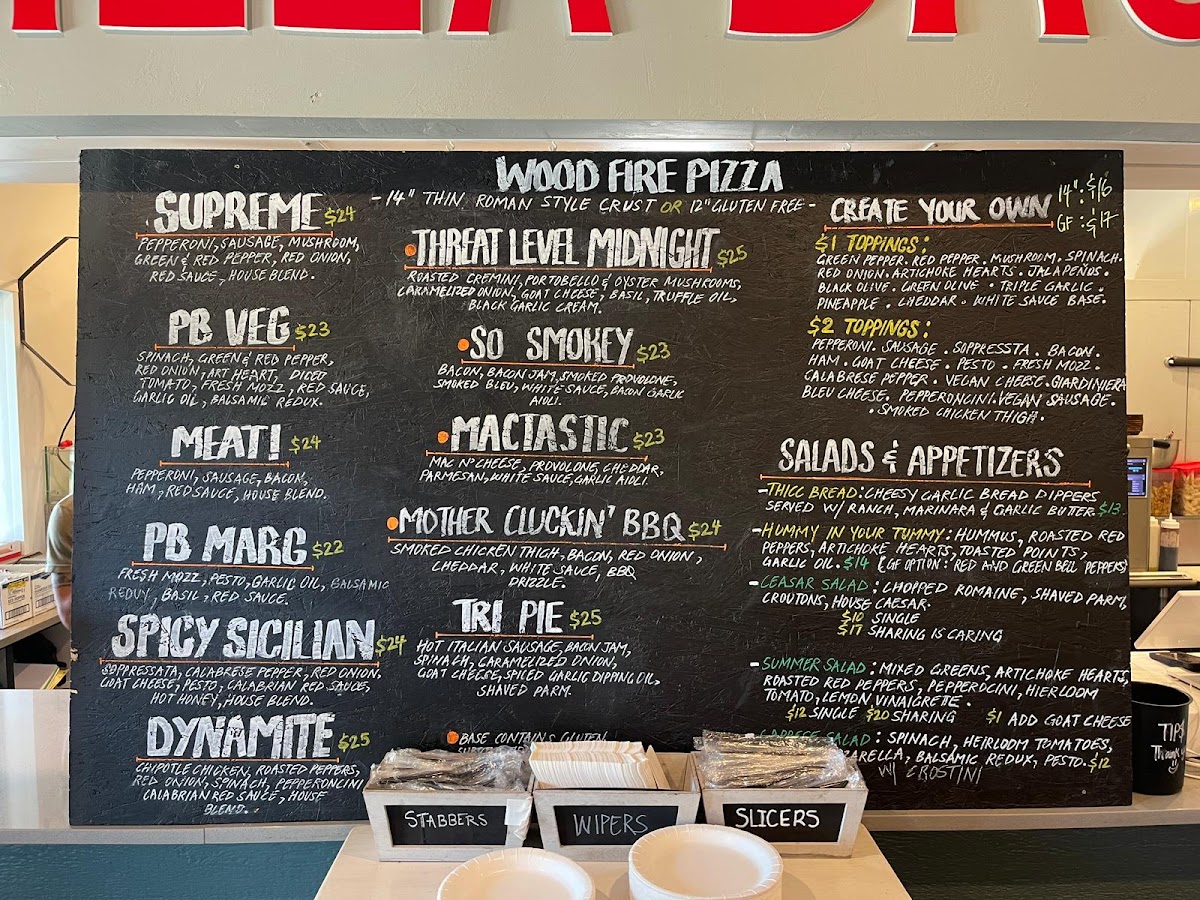 WOOD FIRE PIZZA
-14" THIN ROMAN STYLE CRUST OR 12" GLUTEN FREE-
SUPREME $24
PEPPERONI, SAUSAGE, MUSHROOM,
GREEN & RED PEPPER, RED ONION,
RED SAUCE, HOUSE BLEND.
PB VEG $23
SPINACH, GREEN & RED PEPPER,
RED ONION, ART HEART, DICED
TOMATO, FRESH MOZZ, RED SAUCE,
GARLIC OIL, BALSAMIC REDUX.
MEAT! $24
PEPPERONI, SAUSAGE, BACON,
HAM, RED SAUCE, HOUSE BLEND.
PB MARG $22
FRESH MOZZ, PESTO, GARLIC OIL, BALSAMIC
REDUX, BASIL, RED SAUCE.
SPICY SICILIAN $24
SOPRESSATA, CALABRESE PEPPER, RED ONION,
GOAT CHEESE, PESTO, CALABRIAN RED SAUCE,
HOT HONEY, HOUSE BLEND.
DYNAMITE $25
CHIPOTLE CHICKEN, ROASTED PEPPERS,
RED ONION, SPINACH, PEPPERONCINI
CALABRIAN RED SAUCE, HOUSE
BLEND.
THREAT LEVEL MIDNIGHT $25
ROASTED CREMINI, PORTOBELLO & OYSTER MUSHROOMS,
CARAMELIZED ONION, GOAT CHEESE, BASIL, TRUFFLE OIL,
BLACK GARLIC CREAM.
SO SMOKEY $23
BACON, BACON JAM, SMOKED PROVOLONE,
SMOKED BLEU, WHITE SAUCE, BACON GARLIC
AIOLI.
MACTASTIC $23
MAC N' CHEESE, PROVOLONE, CHEDDAR,
PARMESAN, WHITE SAUCE, GARLIC AIOLI.
MOTHER CLUCKIN' BBQ $24
SMOKED CHICKEN THIGH, BACON, RED ONION,
CHEDDAR, WHITE SAUCE, BBQ
DRIZZLE.
TRI PIE $25
HOT ITALIAN SAUSAGE, BACON JAM,
SPINACH, CARAMELIZED ONION,
GOAT CHEESE, SPICED GARLIC DIPPING OIL,
SHAVED PARM.
BASE CONTAINS GLUTEN
CREATE YOUR OWN 14": $16
GF: $17
$1 TOPPINGS:
GREEN PEPPER. RED PEPPER. MUSHROOM. SPINACH.
RED ONION. ARTICHOKE HEARTS. JALAPEÑOS.
BLACK OLIVE. GREEN OLIVE. TRIPLE GARLIC.
PINEAPPLE. CHEDDAR. WHITE SAUCE BASE.
$2 TOPPINGS:
PEPPERONI. SAUSAGE. SOPPRESSTA. BACON.
HAM. GOAT CHEESE. PESTO. FRESH MOZZ.
CALABRESE PEPPER. VEGAN CHEESE. GIARDINIERA
BLEU CHEESE. PEPPERONCINI. VEGAN SAUSAGE.
. SMOKED CHICKEN THIGH.
SALADS & APPETIZERS
-THICC BREAD: CHEESY GARLIC BREAD DIPPERS
SERVED W/ RANCH, MARINARA & GARLIC BUTTER $13-
-HUMMY IN YOUR TUMMY: HUMMUS, ROASTED RED
PEPPERS, ARTICHOKE HEARTS, TOASTED POINTS,
GARLIC OIL. $14 (GF OPTION: RED AND GREEN BELL PEPPERS)
-CEASAR SALAD: CHOPPED ROMAINE, SHAVED PARM,
CROUTONS, HOUSE CAESAR.
$10 SINGLE
$17 SHARING IS CARING
-SUMMER SALAD: MIXED GREENS, ARTICHOKE HEARTS,
ROASTED RED PEPPERS, PEPPEROCINI, HIERLOOM
TOMATO, LEMON VINAIGRETTE.
$12 SINGLE $20 SHARING $1 ADD GOAT CHEESE
SALAD: SPINACH, HEIRLOOM TOMATOES,
BALSAMIC REDUX, PESTO. $12
W/ CROSTINI
STABBERS
WIPERS
SLICERS
TIPS